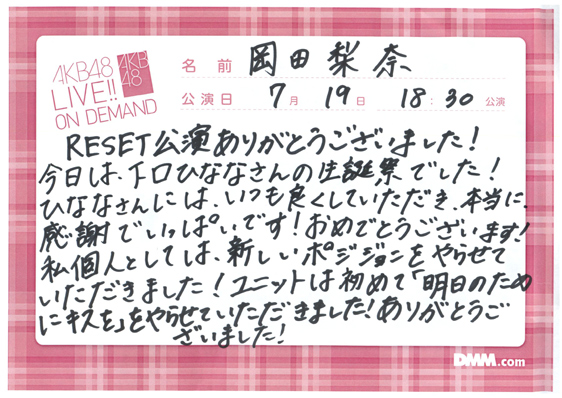 AKB48
LIVE!!
ON DEMAND
AKB
48
名前 岡田梨奈
公演日 7月 19日 18:30 公演
RESET公演ありがとうございました!
今日は、下口ひななさんの生誕祭でした!
ひななさんには、いつも良くしていただき、本当に、
感謝でいっぱいです!おめでとうございます!
私個人としては、新しいポジションをやらせて
いただきました!ユニットは初めて「明日のため
にキスを」をやらせていただきました!ありがとうご
ざいました!
DMM.com